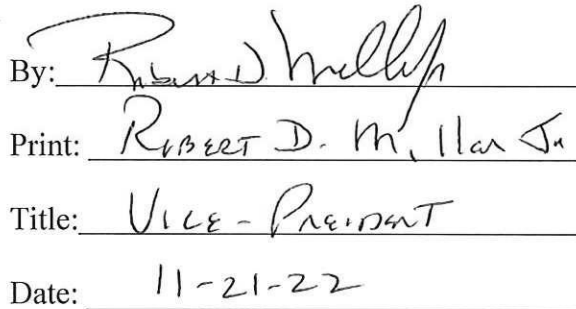 By: Robert D. Millar Jr
Print: ROBERT D. Millar Jr
Title: VICE-PRESIDENT
Date: 11-21-22